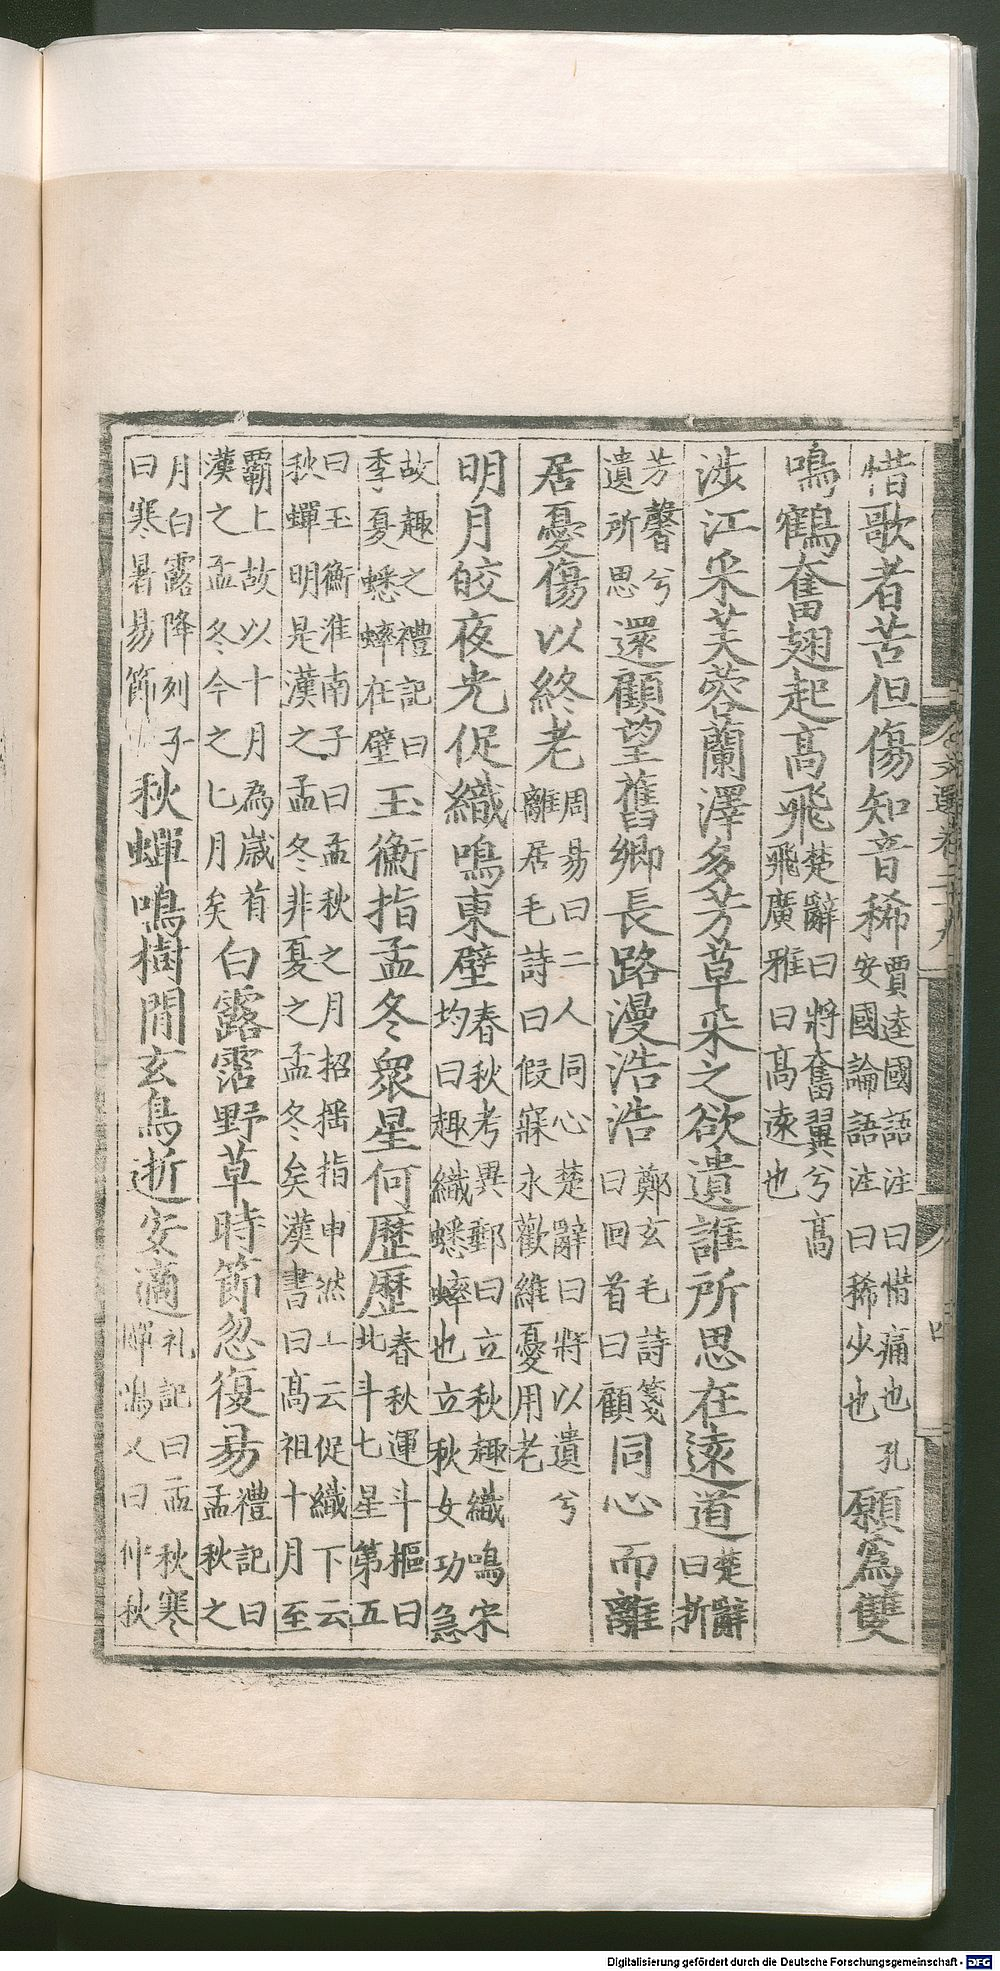 文選卷二十九
四
惜歌者苦但傷知音稀賈逵國語注曰惜痛也孔安國論語注曰稀少也願為雙
鳴鶴奮翅起髙飛楚辭曰將奮翼兮髙飛廣雅曰髙遠也
涉江采芙蓉蘭澤多芳草采之欲遺誰所思在遠道楚辭曰折
芳馨兮遺所思還顧望舊鄉長路漫浩浩鄭玄毛詩箋曰回首曰顧同心而離
居憂傷以終老周易曰二人同心楚辭曰將以遺兮離居毛詩曰假寐永歎維憂用老
明月皎夜光促織鳴東壁春秋考異郵曰立秋趣織鳴宋均曰趣織蟋蟀也立秋女功急
故趣之禮記曰季夏蟋蟀在壁玉衡指孟冬衆星何歷歷春秋運斗樞曰北斗七星第五
曰玉衡淮南子曰孟秋之月招揺指申然上云促織下云秋蟬明是漢之孟冬非夏之孟冬矣漢書曰髙祖十月至
霸上故以十月為歲首漢之孟冬今之七月矣白露霑野草時節忽復易禮記曰孟秋之
月白露降列子曰寒暑易節秋蟬鳴樹間玄鳥逝安適礼記曰孟秋寒蟬鳴又曰仲秋
Digitalisierung gefördert durch die Deutsche Forschungsgemeinschaft - DFG